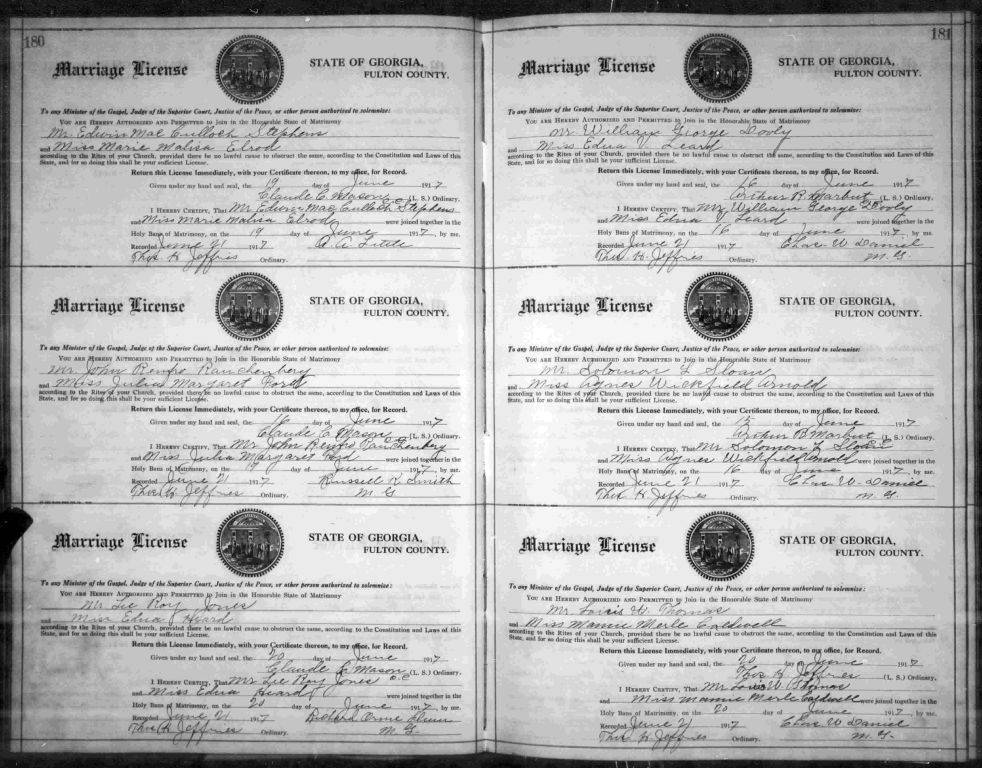 180
Marriage License
STATE OF GEORGIA,
FULTON COUNTY.
To any Minister of the Gospel, Judge of the Superior Court, Justice of the Peace, or other person authorized to solemnize:
YOU ARE HEREBY AUTHORIZED AND PERMITTED to Join in the Honorable State of Matrimony
Mr. Edwin Mac Culloch Stephens
and Miss Marie Malisa Elrod
according to the Rites of your Church, provided there be no lawful cause to obstruct the same, according to the Constitution and Laws of this
State, and for so doing this shall be your sufficient License.
Return this License Immediately, with your Certificate thereon, to my office, for Record.
Given under my hand and seal, the 19 day of June 1917
Claude C. Mason (L. S.) Ordinary.
I HEREBY CERTIFY, That Mr Edwin Mac Culloch Stephens
and Miss Marie Malisa Elrod were joined together in the
Holy Bans of Matrimony, on the 19 day of June 1917, by me.
Recorded June 21 1917 Little
Thos H. Jeffries Ordinary.
Marriage License
STATE OF GEORGIA,
FULTON COUNTY.
To any Minister of the Gospel, Judge of the Superior Court, Justice of the Peace, or other person authorized to solemnize:
YOU ARE HEREBY AUTHORIZED AND PERMITTED to Join in the Honorable State of Matrimony
Mr. John Renfro Rauchenberg
and Miss Julia Margaret Ford
according to the Rites of your Church, provided there be no lawful cause to obstruct the same, according to the Constitution and Laws of this
State, and for so doing this shall be your sufficient License.
Return this License Immediately, with your Certificate thereon, to my office, for Record.
Given under my hand and seal, the 16 day of June 1917
Claude C. Mason (L. S.) Ordinary.
I HEREBY CERTIFY, That Mr John Renfro Rauchenberg
and Miss Julia Margaret Ford were joined together in the
Holy Bans of Matrimony, on the 17 day of June 1917, by me.
Recorded June 21 1917 Russell K. Smith
Thos H. Jeffries Ordinary. M. G.
Marriage License
STATE OF GEORGIA,
FULTON COUNTY.
To any Minister of the Gospel, Judge of the Superior Court, Justice of the Peace, or other person authorized to solemnize:
YOU ARE HEREBY AUTHORIZED AND PERMITTED to Join in the Honorable State of Matrimony
Mr Lee Roy Jones
and Miss Edna Heard
according to the Rites of your Church, provided there be no lawful cause to obstruct the same, according to the Constitution and Laws of this
State, and for so doing this shall be your sufficient License.
Return this License Immediately, with your Certificate thereon, to my office, for Record.
Given under my hand and seal, the 20 day of June 1917
Claude C. Mason (L. S.) Ordinary.
I HEREBY CERTIFY, That Mr Lee Roy Jones
and Miss Edna Heard were joined together in the
Holy Bans of Matrimony, on the 20 day of June 1917, by me.
Recorded June 21 1917 Richard Orme Flinn
Thos H. Jeffries Ordinary. M. G.
181
Marriage License
STATE OF GEORGIA,
FULTON COUNTY.
To any Minister of the Gospel, Judge of the Superior Court, Justice of the Peace, or other person authorized to solemnize:
YOU ARE HEREBY AUTHORIZED AND PERMITTED to Join in the Honorable State of Matrimony
Mr William George Dooly
and Miss Edna V. Leard
according to the Rites of your Church, provided there be no lawful cause to obstruct the same, according to the Constitution and Laws of this
State, and for so doing this shall be your sufficient License.
Return this License Immediately, with your Certificate thereon, to my office, for Record.
Given under my hand and seal, the 16 day of June 1917
Arthur R. Marbut (L. S.) Ordinary.
I HEREBY CERTIFY, That Mr William George Dooly
and Miss Edna V. Leard were joined together in the
Holy Bans of Matrimony, on the 16 day of June 1917, by me.
Recorded June 21 1917 Chas. W. Daniel
Thos H. Jeffries Ordinary. M. G.
Marriage License
STATE OF GEORGIA,
FULTON COUNTY.
To any Minister of the Gospel, Judge of the Superior Court, Justice of the Peace, or other person authorized to solemnize:
YOU ARE HEREBY AUTHORIZED AND PERMITTED to Join in the Honorable State of Matrimony
Mr. Solomon L Sloan
and Miss Agnes Wickfield Arnold
according to the Rites of your Church, provided there be no lawful cause to obstruct the same, according to the Constitution and Laws of this
State, and for so doing this shall be your sufficient License.
Return this License Immediately, with your Certificate thereon, to my office, for Record.
Given under my hand and seal, the 15 day of June 1917
Arthur R Marbut (L. S.) Ordinary.
I HEREBY CERTIFY, That Mr Solomon L Sloan
and Miss Agnes Wickfield Arnold were joined together in the
Holy Bans of Matrimony, on the 16 day of June 1917, by me.
Recorded June 21 1917 Chas W. Daniel
Thos H. Jeffries Ordinary. M. G.
Marriage License
STATE OF GEORGIA,
FULTON COUNTY.
To any Minister of the Gospel, Judge of the Superior Court, Justice of the Peace, or other person authorized to solemnize:
YOU ARE HEREBY AUTHORIZED AND PERMITTED to Join in the Honorable State of Matrimony
Mr. Louis W. Thomas
and Miss Mamie Merle Caldwell
according to the Rites of your Church, provided there be no lawful cause to obstruct the same, according to the Constitution and Laws of this
State, and for so doing this shall be your sufficient License.
Return this License Immediately, with your Certificate thereon, to my office, for Record.
Given under my hand and seal, the 20 day of June 1917
Thos H Jeffries (L. S.) Ordinary.
I HEREBY CERTIFY, That Mr Louis W Thomas
and Miss Mamie Merle Caldwell were joined together in the
Holy Bans of Matrimony, on the 20 day of June 1917, by me.
Recorded June 21 1917 Chas W Daniel
Thos H. Jeffries Ordinary. M. G.